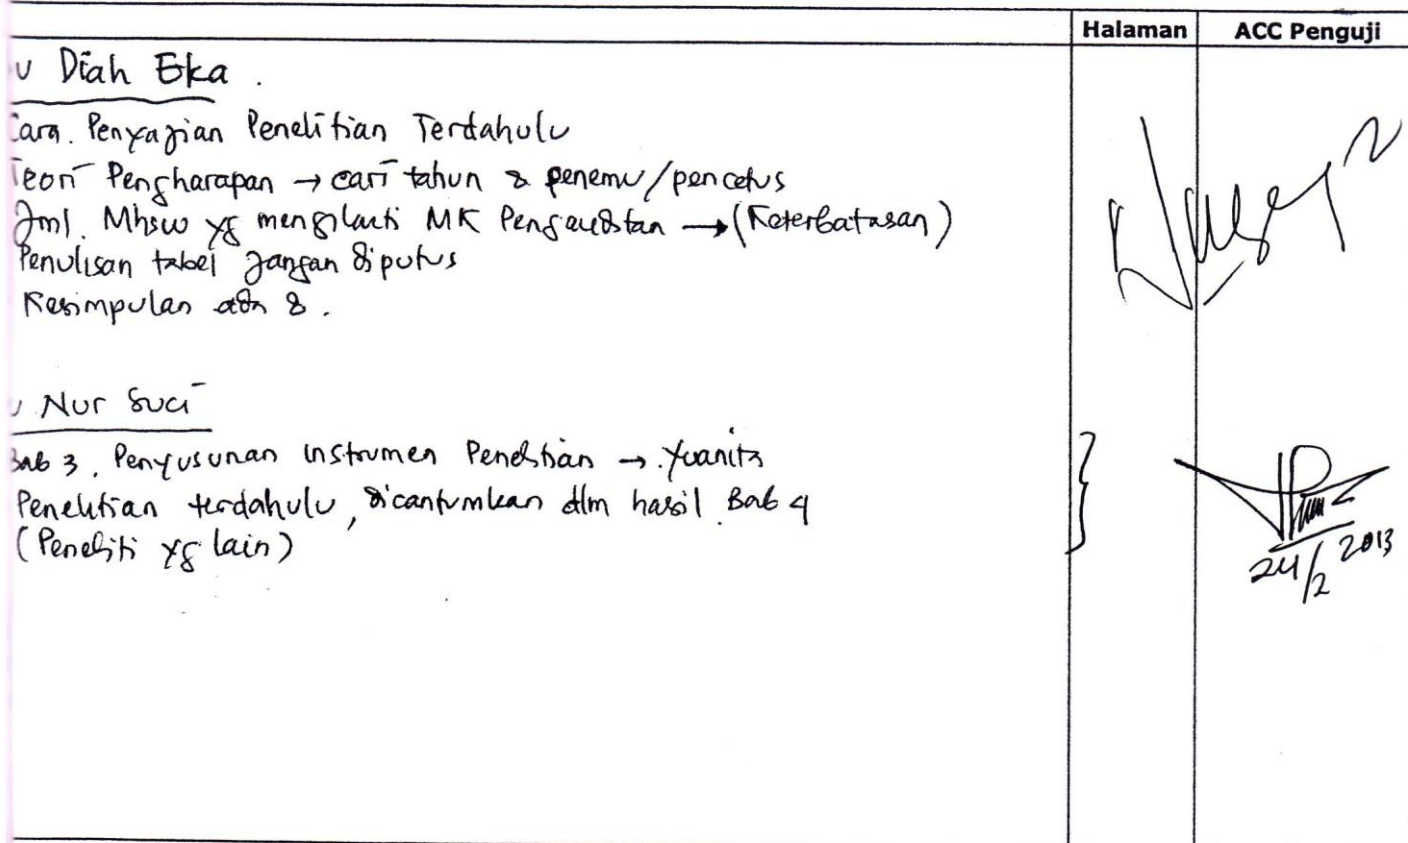 Halaman ACC Penguji
u Diah Eka.
Cara. Penyajian Penelitian Terdahulu
Teori Pengharapan → cari tahun & penemu/pencetus
Jml. Mhsw yg mengikuti MK Pengauditan → (Keterbatasan)
Penulisan tabel jangan diputus
Kesimpulan 8.
u Nur Suci
Bab 3. Penyusunan instrumen Penelitian → Yuanita
Penelitian terdahulu, dicantumkan dlm hasil Bab 4
(Peneliti yg lain)
24/2 2013